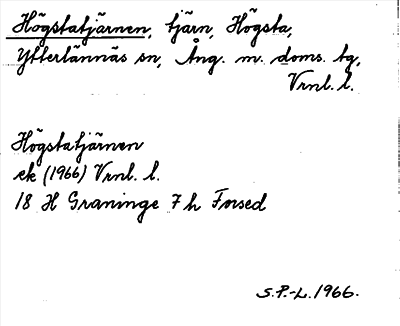 Högstatjärnen, tjärn, Högsta,
Ytterlännäs sn, Ång. m. doms. tg,
Vrnl. l.
Högstatjärnen
ek (1966) Vrnl. l.
18 H Graninge 7 h Forsed
S.P.-L. 1966.